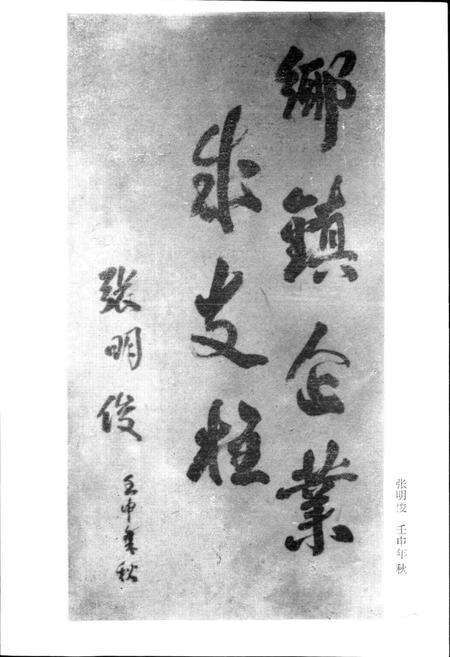 鄉鎮企業
成支柱
張明俊
壬申年秋
张明俊 壬申年秋